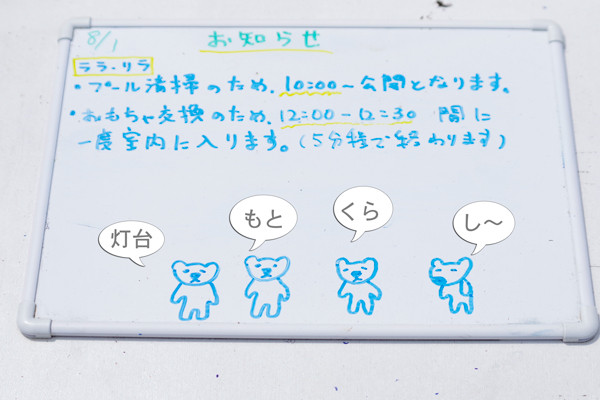 8/1
お知らせ
ララ・リラ
・プール清掃のため、10:00〜公開となります。
・おもちゃ交換のため、12:00-12:30 間に
一度室内に入ります。(5分程で終わります)
灯台
もと
くら
し〜